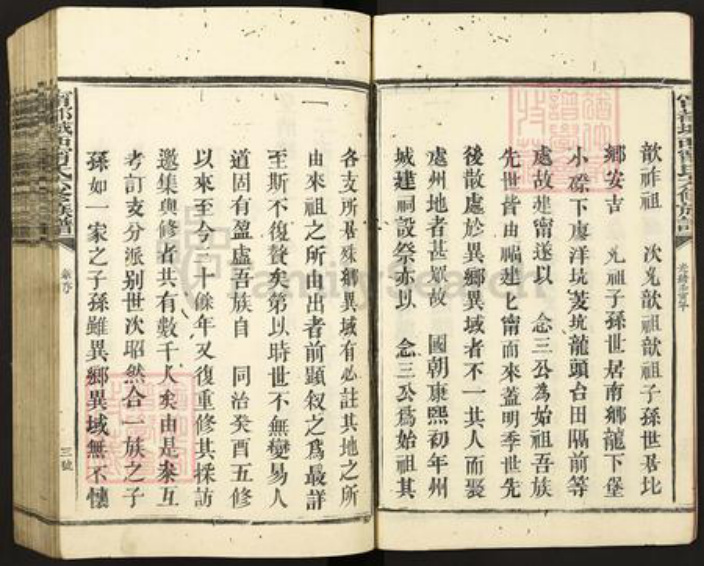 歆祚祖　次允歆祖歆祖子孫世居北
鄉安吉　允祖子孫世居南鄉龍下堡
小磜下廖洋坑菱坑龍頭台田隔前等
處故建甯遂以　念三公為始祖吾族
先世皆由福建匕甯而來蓋明季世先
後散處於異鄉異域者不一其人而聚
處州地者甚眾故　國朝康熙初年州
城建祠設祭亦以　念三公為始祖其
各支所居殊鄉異域有必註其地之所
由來祖之所由出者前顯叙之為最詳
至斯不復贅矣第以時世不無變易人
道固有盈虛吾族自　同治癸酉五修
以來至今三十餘年又復重修其採訪
邀集與修者共有數千人矣由是来互
考訂支分派别世次昭然合一族之子
孫如一家之子孫雖異鄉異域無不懷
三號